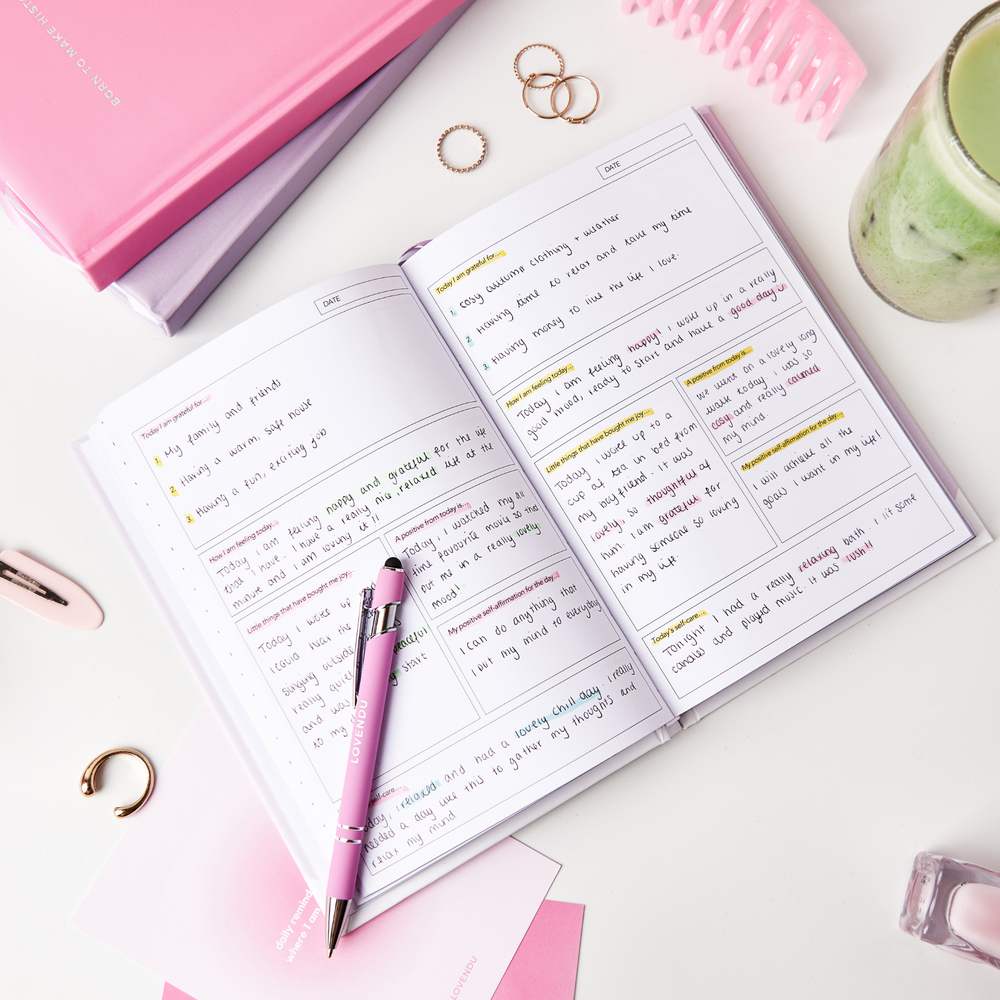 BORN TO MAKE HISTO
DATE
Today I am grateful for...
1. My family and friends
2. Having a warm, safe house
3. Having a fun, exciting job
How I am feeling today...
Today I am feeling happy and grateful for the life
that I have. I have a really nice, relaxed life at the
minute and I am loving it!!
Little things that have bought me joy...
Today I woke up
I could hear the
singing outside
really
and was
to my
eaceful
start
A positive from today is...
Today, I watched my all
time favourite movie so this
put me in a really lovely
mood!
My positive self-affirmation for the day...
I can do anything that
I put my mind to everyday
self-care...
oday, I relaxed and had a lovely chill day. I really
needed a day like this to gather my thoughts and
relax my mind
DATE
Today I am grateful for...
1. cosy autumn clothing + weather
2. Having time to relax and have my time
3. Having money to live the life I love.
How I am feeling today...
Today I am feeling happy! I woke up in a really
good mood, ready to start and have a good day
Little things that have bought me joy...
Today I woke up to a
cup of tea in bed from
my boyfriend. it was
lovely, so thoughtful of
him. I am grateful for
having someone so loving
in my life.
A positive from today is...
we went on a lovely long
walk today, I was so
cosy and really calmed
my mind
My positive self-affirmation for the day...
I will achieve all the
goals I want in my life!
Today's self-care...
Tonight I had a really relaxing bath. I lit some
candles and played music. it was lush!!
LOVENDU
daily remind
where I am
LOVENDU